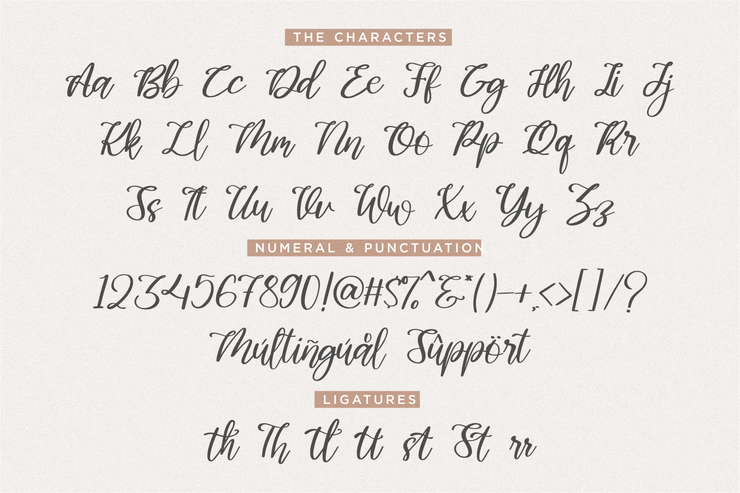 THE CHARACTERS
Aa Bb Cc Dd Ee Ff Gg Hh Ii Jj
Kk Ll Mm Nn Oo Pp Qq Rr
Ss Tt Uu Vv Ww Xx Yy Zz
NUMERAL & PUNCTUATION
1234567890!@#$%^&*()-+,<>[]/?
Múltiñgúål Sûppört
LIGATURES
th Th tl tt st St rr